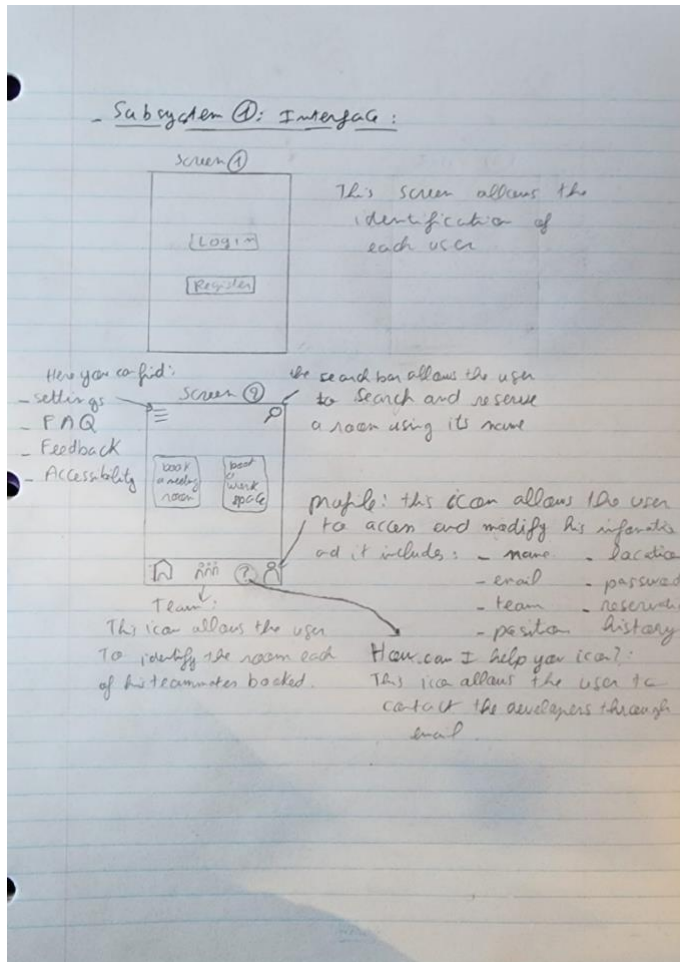 - Subsystem ①: Interface:
Screen ①
Login
Register
This screen allows the
identification of
each user
Here you can find:
- settings
- FAQ
- Feedback
- Accessibility
Screen ②
the search bar allows the user
to search and reserve
a room using its name
book
a meeting
room
book
a
work
space
profile: this icon allows the user
to access and modify his informatio
and it includes: - name - location
- email - password
- team - reservati
- position history
?
Team:
This icon allows the user
To identify the room each
of his teammates booked.
How can I help you icon?:
This icon allows the user to
contact the developers through
email.